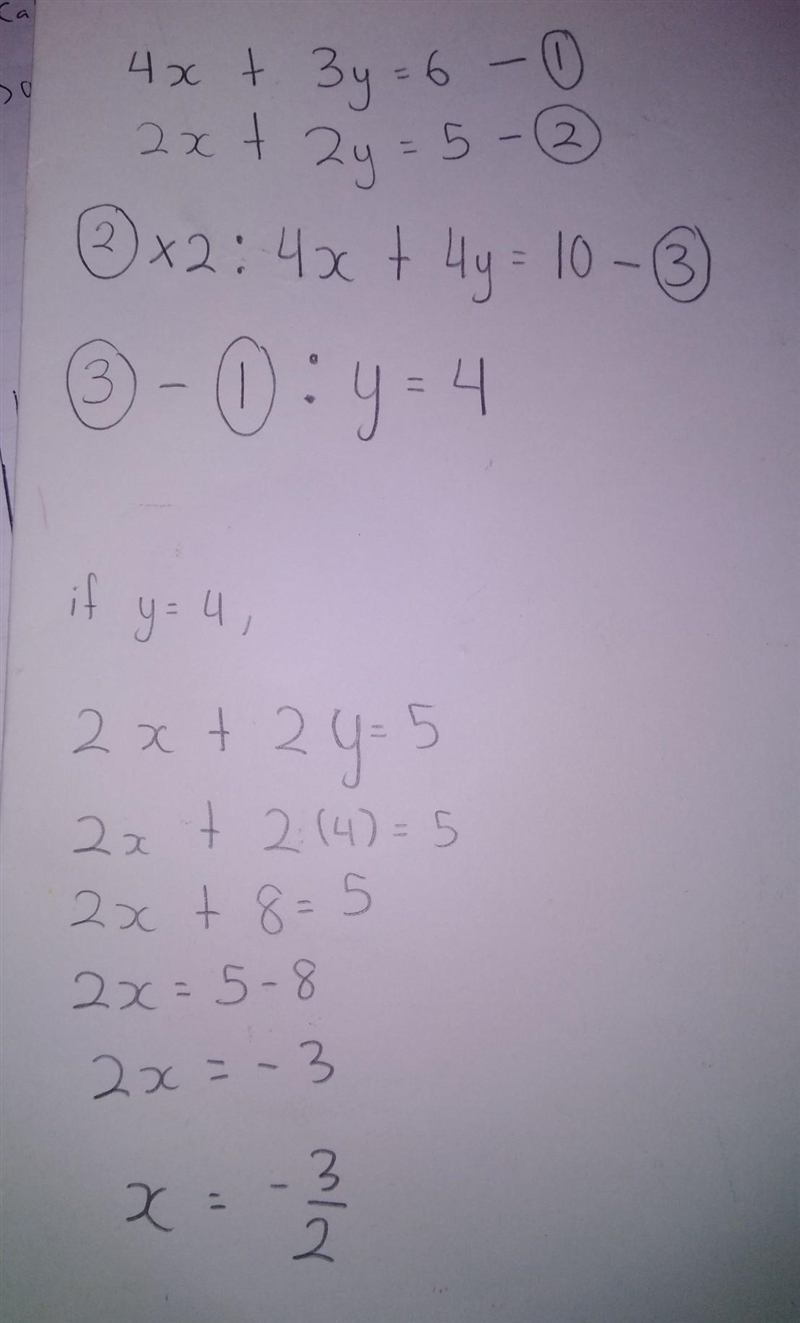 4x + 3y = 6 - ①
2x + 2y = 5 - ②
② × 2 : 4x + 4y = 10 - ③
③ - ① : y = 4
if y = 4,
2x + 2y = 5
2x + 2(4) = 5
2x + 8 = 5
2x = 5 - 8
2x = - 3
x = - 3/2